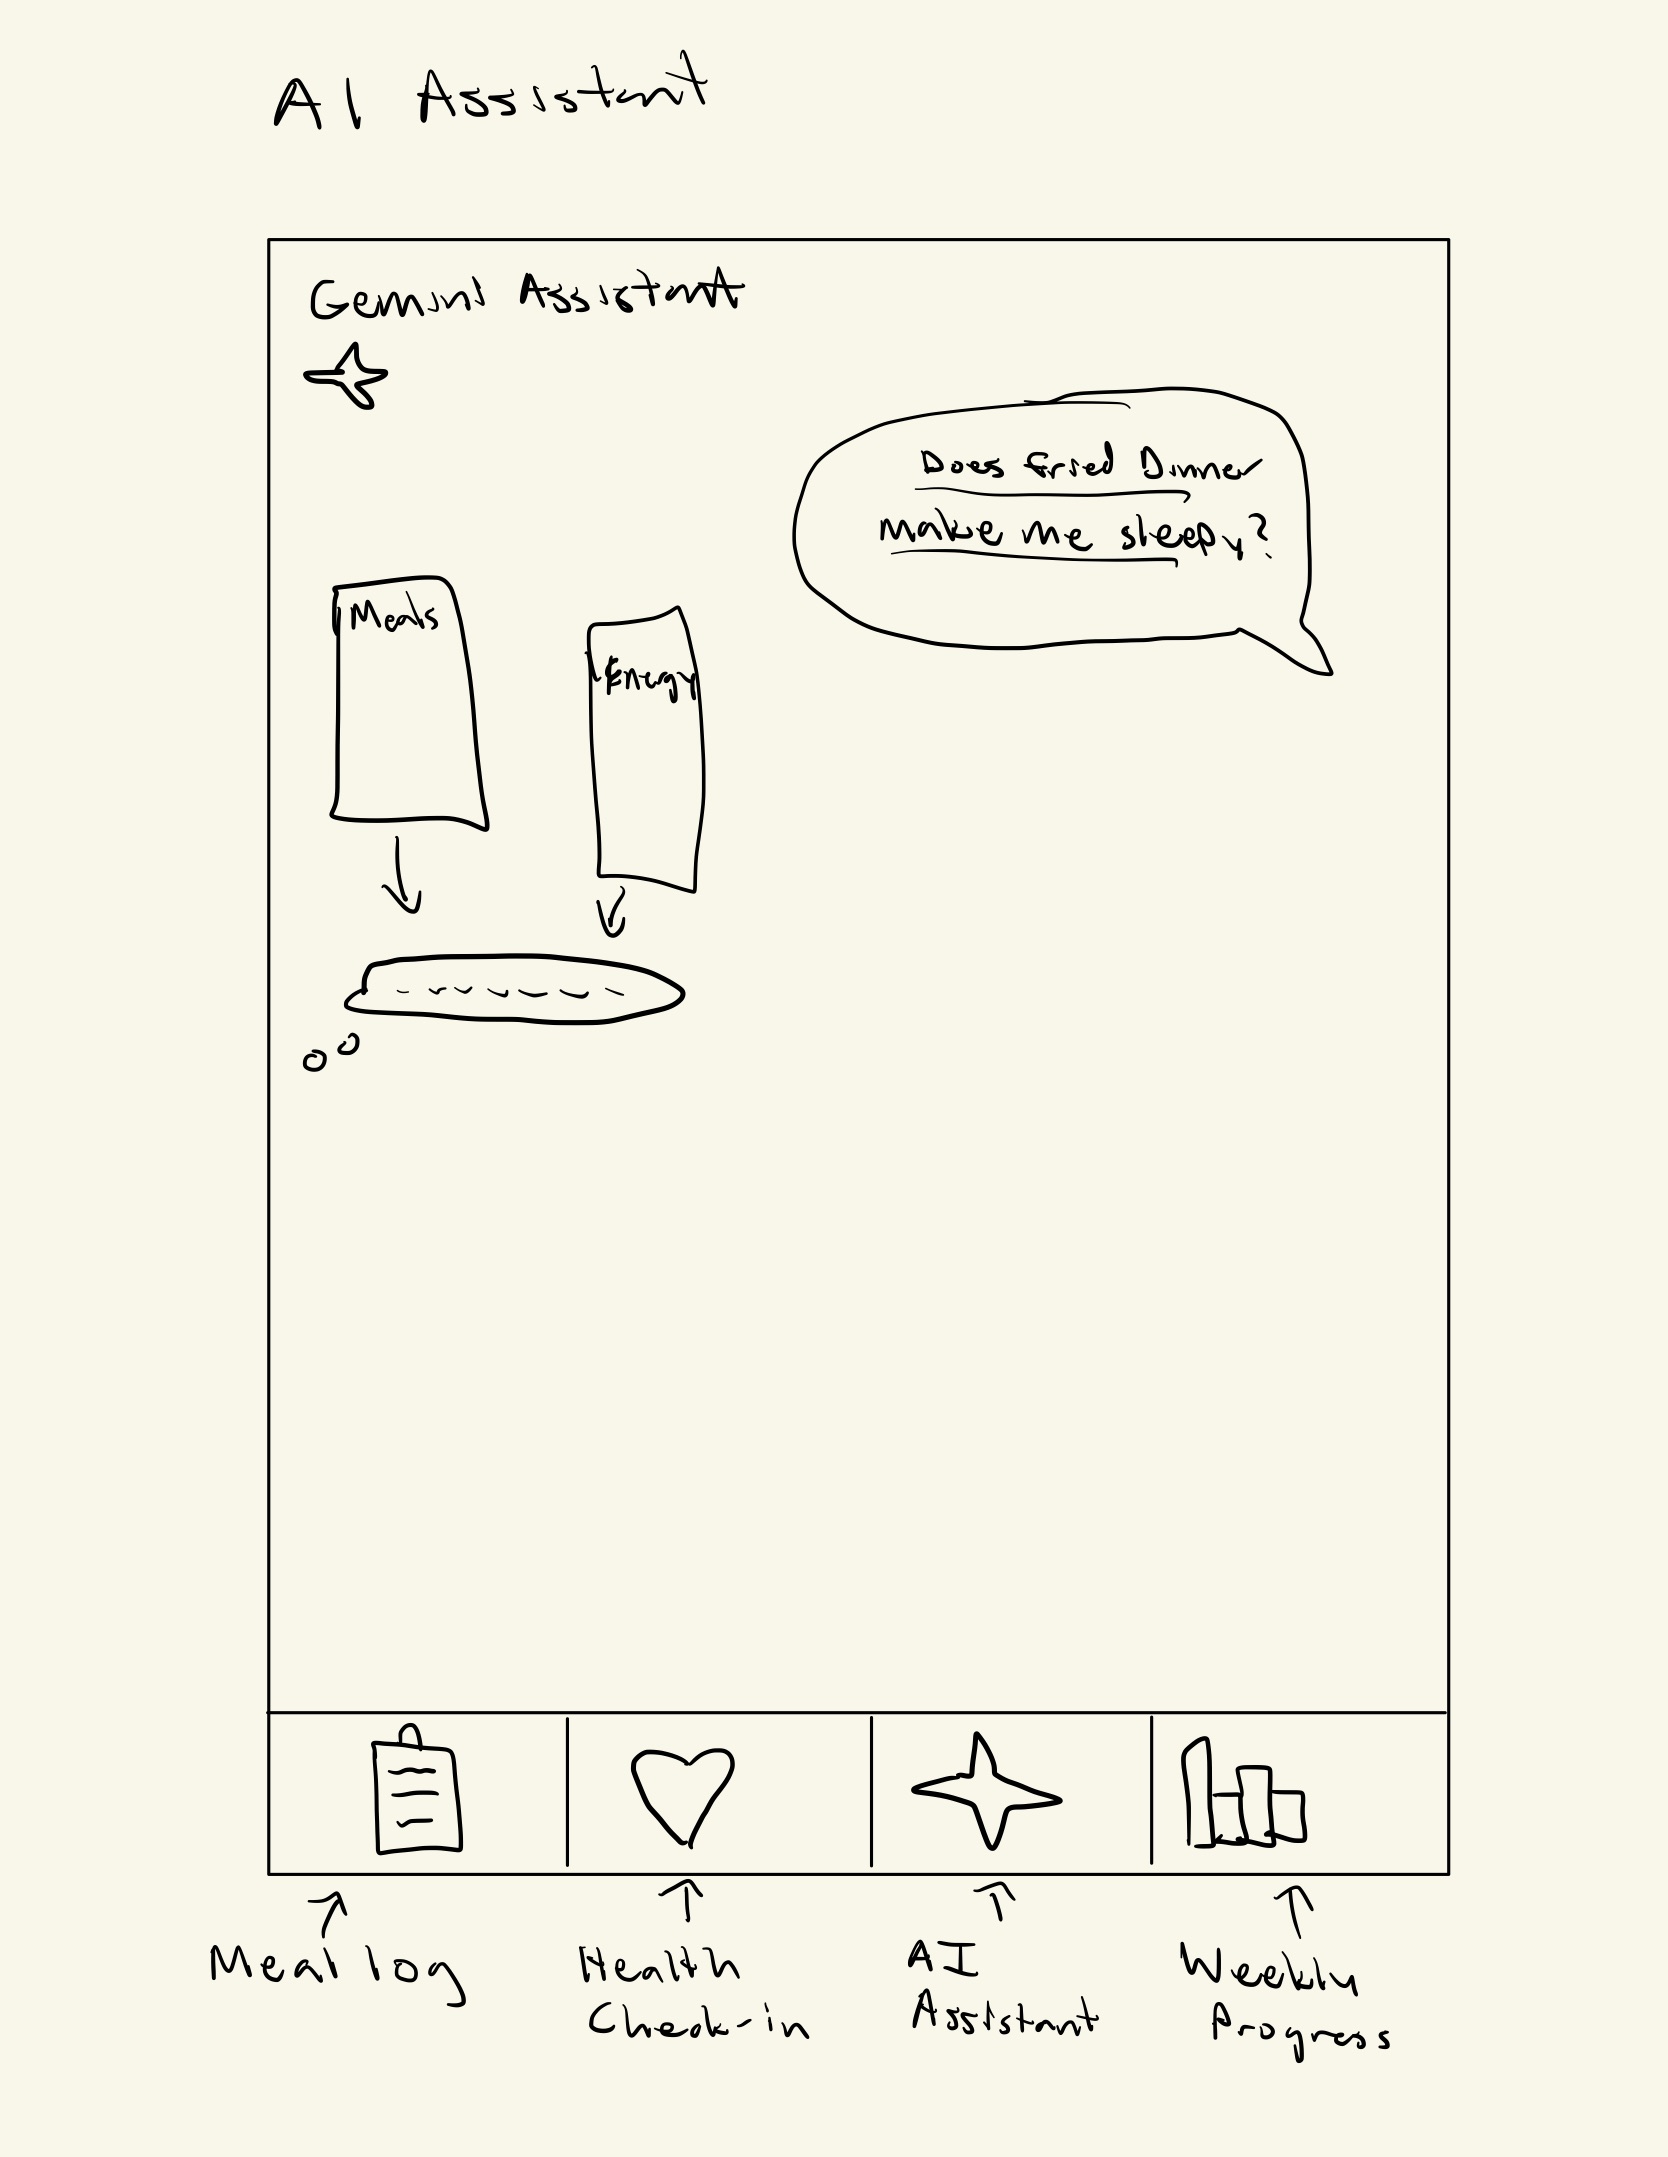 AI Assistant
Gemini Assistant
Does fried Dinner
make me sleepy?
Meals
Energy
Meal log
Health
Check-in
AI
Assistant
Weekly
Progress